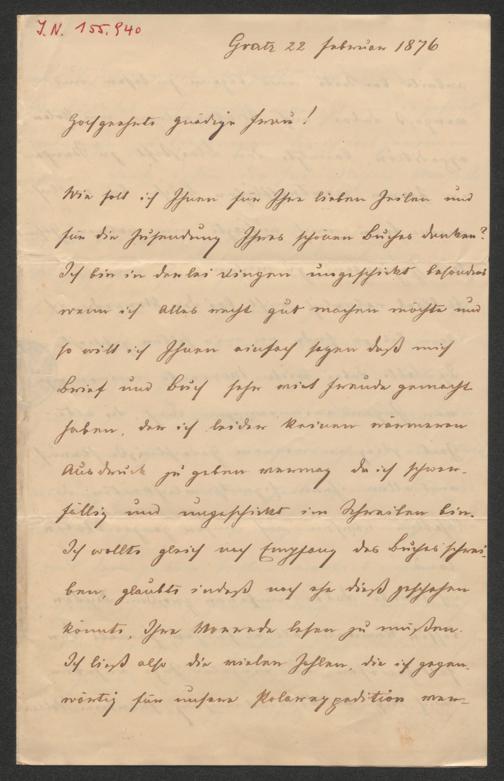 I.N. 155.940
Gratz 22 Februar 1876
Hochgeehrte gnädige Frau!
Wie soll ich Ihnen für Ihre lieben Zeilen und
für die Zusendung Ihres schönen Buches danken?
Ich bin in derlei Dingen ungeschickt besonders
wenn ich alles recht gut machen möchte und
so will ich Ihnen einfach sagen daß mir
Brief und Buch sehr viel Freude gemacht
haben, der ich leider keinen wärmeren
Ausdruck zu geben vermag da ich schwer-
fällig und ungeschickt im Schreiben bin.
Ich wollte gleich nach Empfang des Buches schrei-
ben, glaubte indeß noch ehe dieß geschehen
könnte, Ihre Vorrede lesen zu müßen.
Ich ließ also die vielen Zahlen, die ich gegen-
wärtig für unsere Polarexpedition ver-